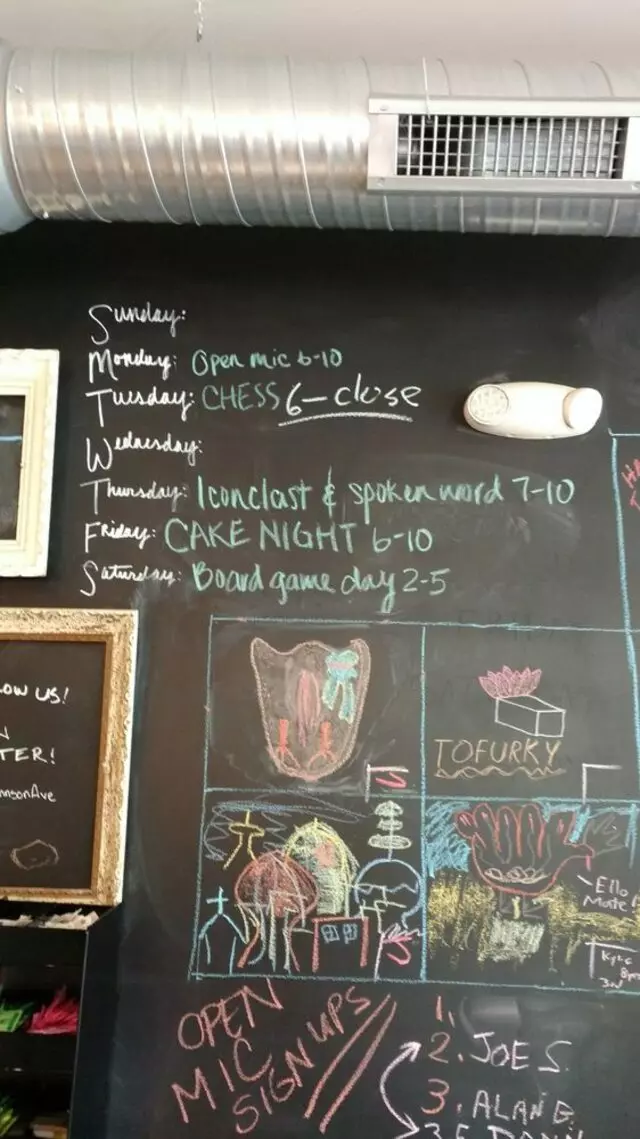 Sunday:
Monday: Open mic 6-10
Tuesday: CHESS 6-close
Wednesday:
Thursday: Iconclast & spoken word 7-10
Friday: CAKE NIGHT 6-10
Saturday: Board game day 2-5
OW US!
N
TER!
msonAve
TOFURKY
Ello
Mate!
OPEN
MIC
SIGN UPS
1.
2. JOE S.
3. ALAN G.